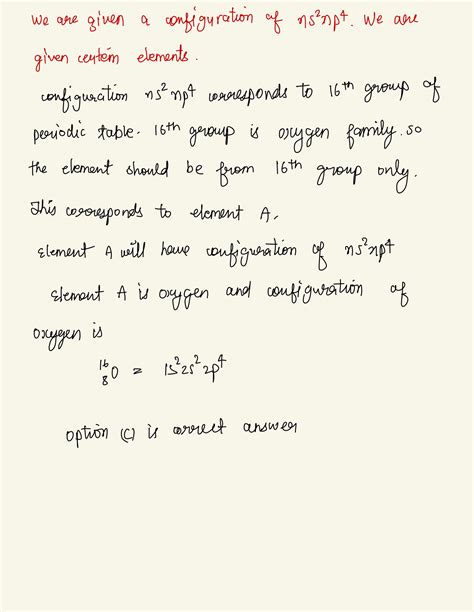 we are given a configuration of ns²np⁴. We are
given certem elements.
configuration ns²np⁴ corresponds to 16th group of
periodic table. 16th group is oxygen family. so
the element should be from 16th group only.
This corresponds to element A.
Element A will have configuration of ns²np⁴
Element A is oxygen and configuration of
oxygen is
¹⁶₈O = 1s²2s²2p⁴
option (C) is correct answer